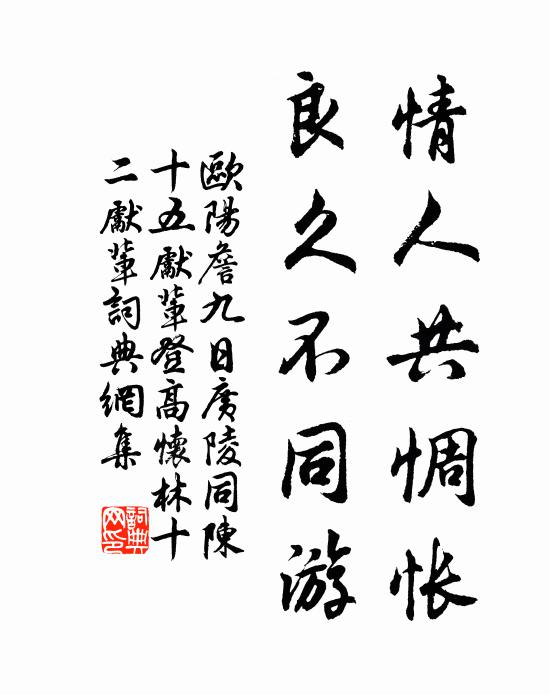 情人共惆怅
良久不同游
歐陽詹九日廣陵同陳
十五獻輩登高懷林十
二獻輩詞典網集
詞典
网印